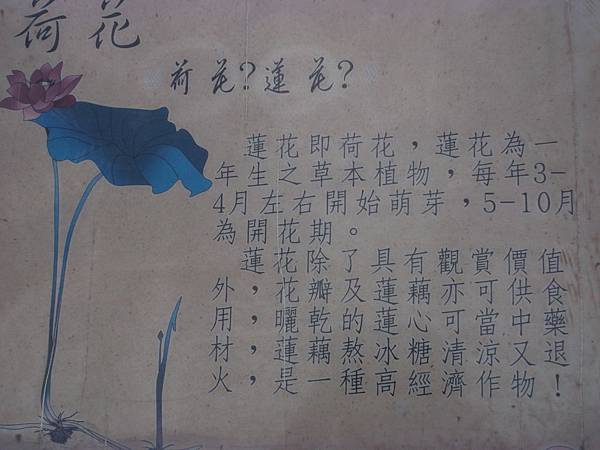 荷花
荷花?蓮花?
蓮花即荷花，蓮花為一
年生之草本植物，每年3-
4月左右開始萌芽，5-10月
為開花期。
蓮花除了具有觀賞價值
外，花瓣及蓮藕亦可供食
用，曬乾的蓮心可當中藥
材，蓮藕熬冰糖清涼又退
火，是一種高經濟作物!